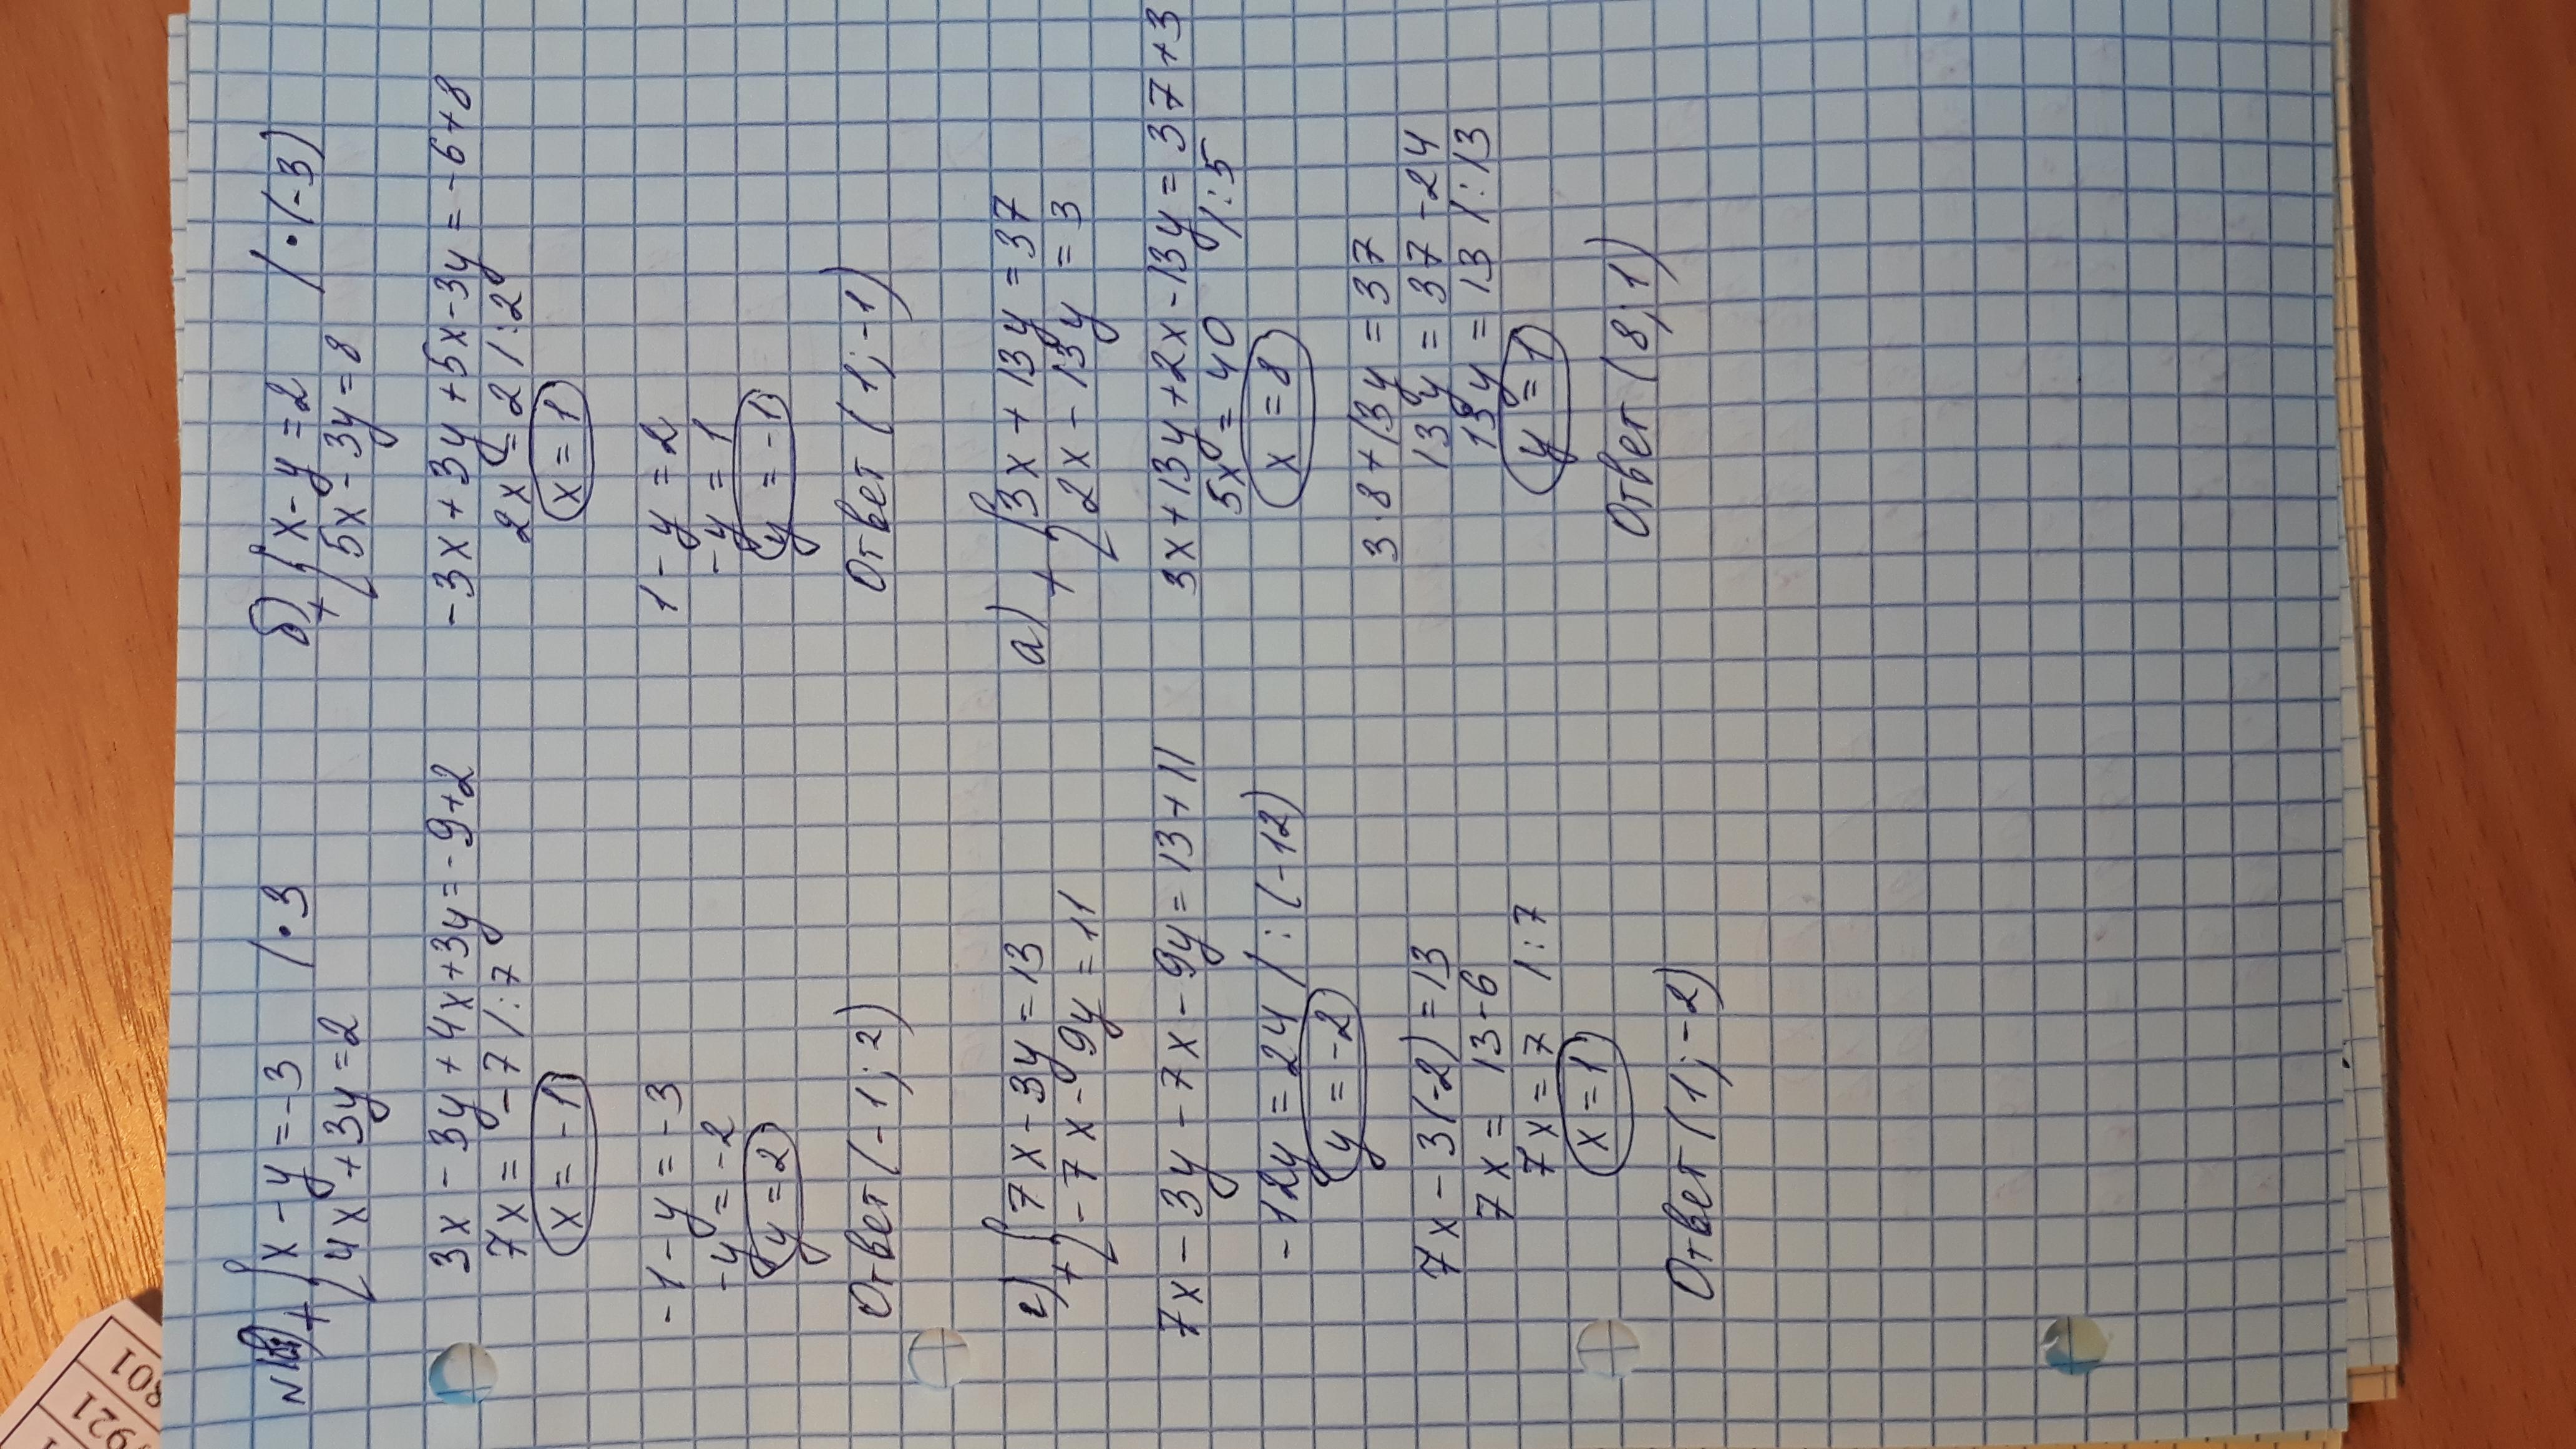 x - y = -3 | • 3
4x + 3y = 2
3x - 3y + 4x + 3y = -9+2
7x = -7 | : 7
x = -1
-1 - y = -3
-y = -2
y = 2
Ответ (-1; 2)
б) + x - y = 2 | • (-3)
5x - 3y = 8
-3x + 3y + 5x - 3y = -6+8
2x = 2 | : 2
x = 1
1 - y = 2
-y = 1
y = -1
Ответ (1; -1)
г) + 7x - 3y = 13
-7x - 9y = 11
7x - 3y - 7x - 9y = 13+11
-12y = 24 | : (-12)
y = -2
7x - 3(-2) = 13
7x = 13-6
7x = 7 | : 7
x = 1
Ответ (1; -2)
а) + 3x + 13y = 37
2x - 13y = 3
3x + 13y + 2x - 13y = 37+3
5x = 40 | : 5
x = 8
3·8 + 13y = 37
13y = 37 - 24
13y = 13 | : 13
y = 1
Ответ (8; 1)
921
801